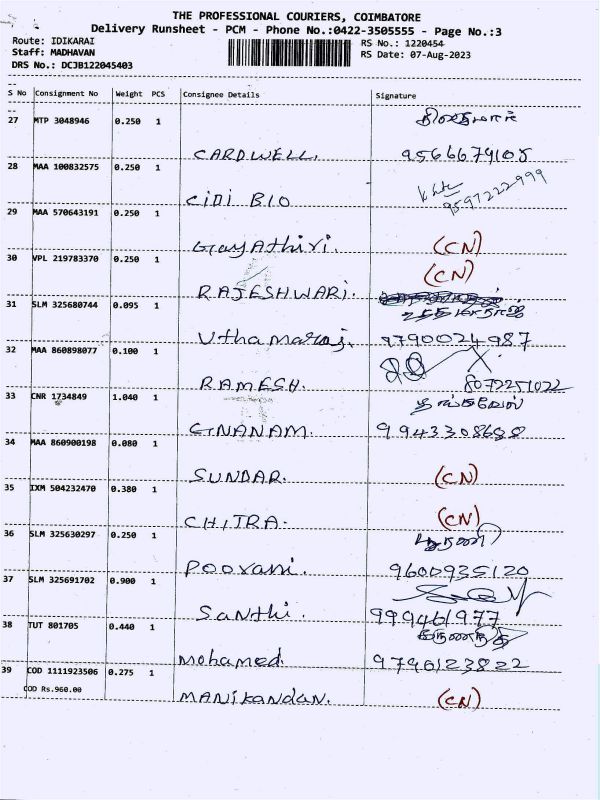 THE PROFESSIONAL COURIERS, COIMBATORE
Delivery Runsheet - PCM - Phone No.:0422-3505555 - Page No.:3
Route: IDIKARAI RS No.: 1220454
Staff: MADHAVAN RS Date: 07-Aug-2023
DRS No.: DCJB122045403
S No Consignment No Weight PCS Consignee Details Signature
27 MTP 3048946 0.250 1
CARDWELL. 9566679108
28 MAA 100832575 0.250 1
CIDI BIO 9597222999
29 MAA 570643191 0.250 1
GayAthiri. (CN)
30 VPL 219783370 0.250 1 (CN)
RAJESHWARI.
31 SLM 325680744 0.095 1
Uthamaraj. 9790024987
32 MAA 860898077 0.100 1
RAMESH. 8072251022
33 CNR 1734849 1.040 1
GNANAM. 9943308688
34 MAA 860900198 0.080 1
SUNDAR. (CN)
35 IXM 504232470 0.380 1
CHITRA. (CN)
36 SLM 325630297 0.250 1
Poovani. 9600935120
37 SLM 325691702 0.900 1
Santhi. 999461977
38 TUT 801705 0.440 1
Mohamed. 9796123822
39 COD 1111923506 0.275 1
COD Rs.960.00
MANIKANDAN. (CN)